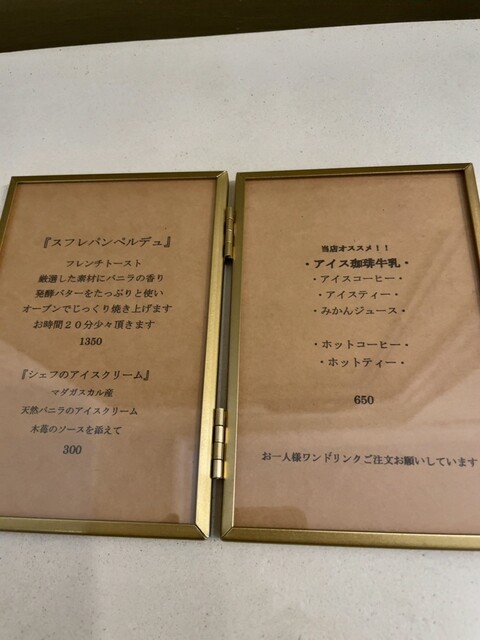 『スフレパンペルデュ』
フレンチトースト
厳選した素材にバニラの香り
発酵バターをたっぷりと使い
オーブンでじっくり焼き上げます
お時間20分少々頂きます
1350
『シェフのアイスクリーム』
マダガスカル産
天然バニラのアイスクリーム
木苺のソースを添えて
300
当店オススメ!!
・アイス珈琲牛乳・
・アイスコーヒー・
・アイスティー・
・みかんジュース・
・ホットコーヒー・
・ホットティー・
650
お一人様ワンドリンクご注文お願いしています